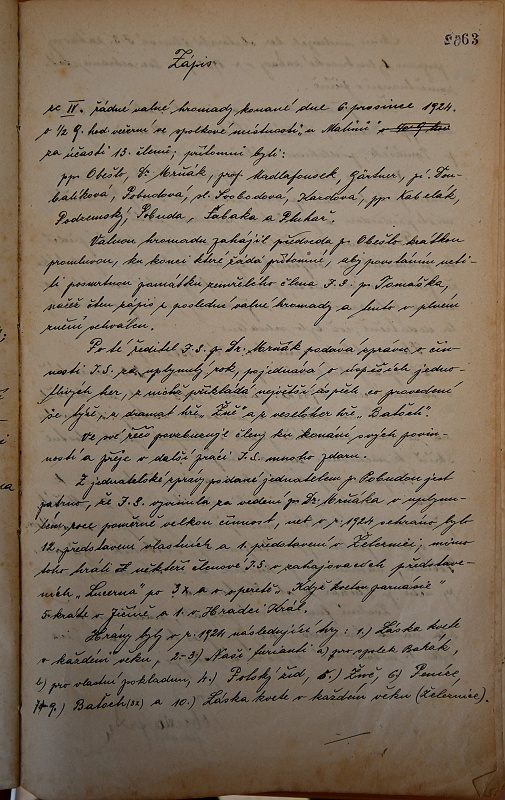 63
Zápis
ze IV. řádné valné hromady konané dne 6. prosince 1924.
o 1/2 9. hod. večerní ve spolkové místnosti „u Matinů"
za účasti 13. členů; přítomni byli:
pp. Obešlo, Dr. Mrňák, prof. Gärtner, pí.
Pobudová, sl. Svobodová, Kardová, pp. Kabelák,
Podzemský, Pobuda, Šabaka a Pluhař.
Valnou hromadu zahájil předseda p. Obešlo krátkou
promluvou, ku konci které žádá přítomné, aby povstáním ucti-
li posmrtnou památku zemřelého člena J. S. p. Tomáška,
načež čten zápis z poslední valné hromady a tento v plném
znění schválen.
Poté ředitel J. S. p. Dr. Mrňák podává zprávu o čin-
nosti J. S. za uplynutý rok, pojednává o úspěších jedno-
tlivých her, z nichž přikládá největší úspěch, co provedení
se týče, z dramat hře „Žně" a z veseloher hře „Batoch".
Ve své řeči povzbuzuje členy ku konání svých povin-
ností a přeje v další práci J. S. mnoho zdaru.
Z jednatelské zprávy podané jednatelem p. Pobudou jest
patrno, že J. S. vyvinula za vedení p. Dr. Mrňáka v uplynu-
lém roce poměrně velkou činnost, neb v r. 1924 sehráno bylo
12. představení vlastních a 1. představení v Železnici; mimo
toho hráli někteří členové J. S. v zahajovacích představe-
ních „Lucerna" po 3x a v operetě „Když kvetou
5.kráte v Jičíně a 1. v Hradci Král.
Hrány byly v r. 1924 následující hry: 1.) Láska kvete
v každém věku, 2.-3.) Naši furianti a) pro spolek Barák,
b) pro vlastní pokladnu, 4.) Polský žid, 5.) Žně, 6.) Peníze,
7-9.) Batoch (3x) a 10.) Láska kvete v každém věku (Železnice).